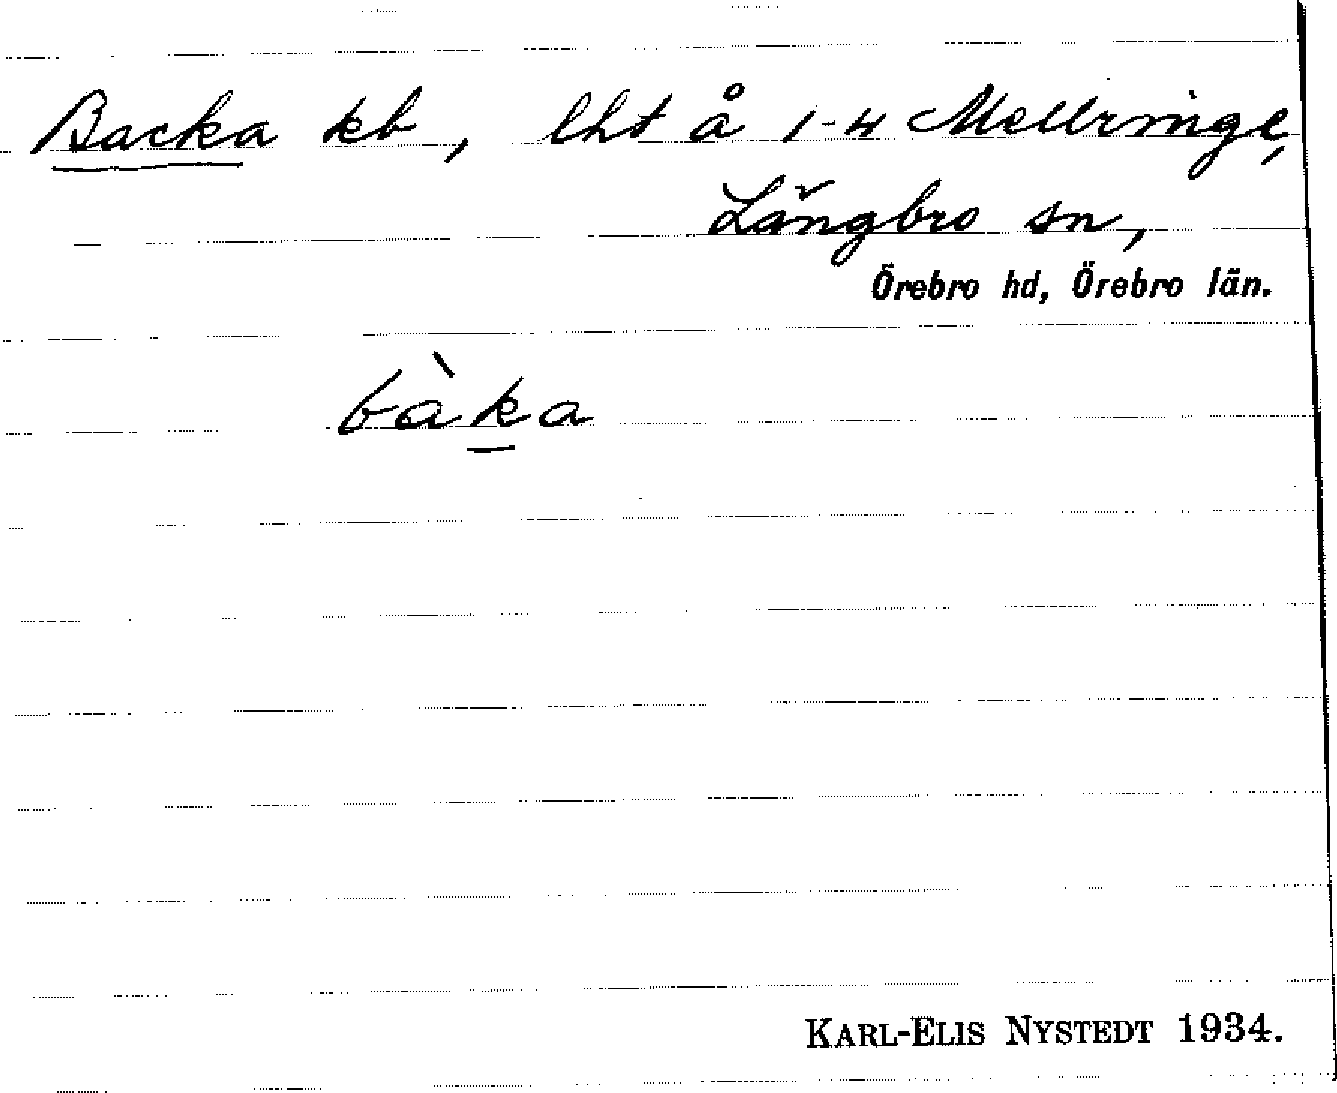 Backa kb, lht å 1-4 Mellringe,
Långbro sn,
Örebro hd, Örebro län.
bàka
KARL-ELIS NYSTEDT 1934.